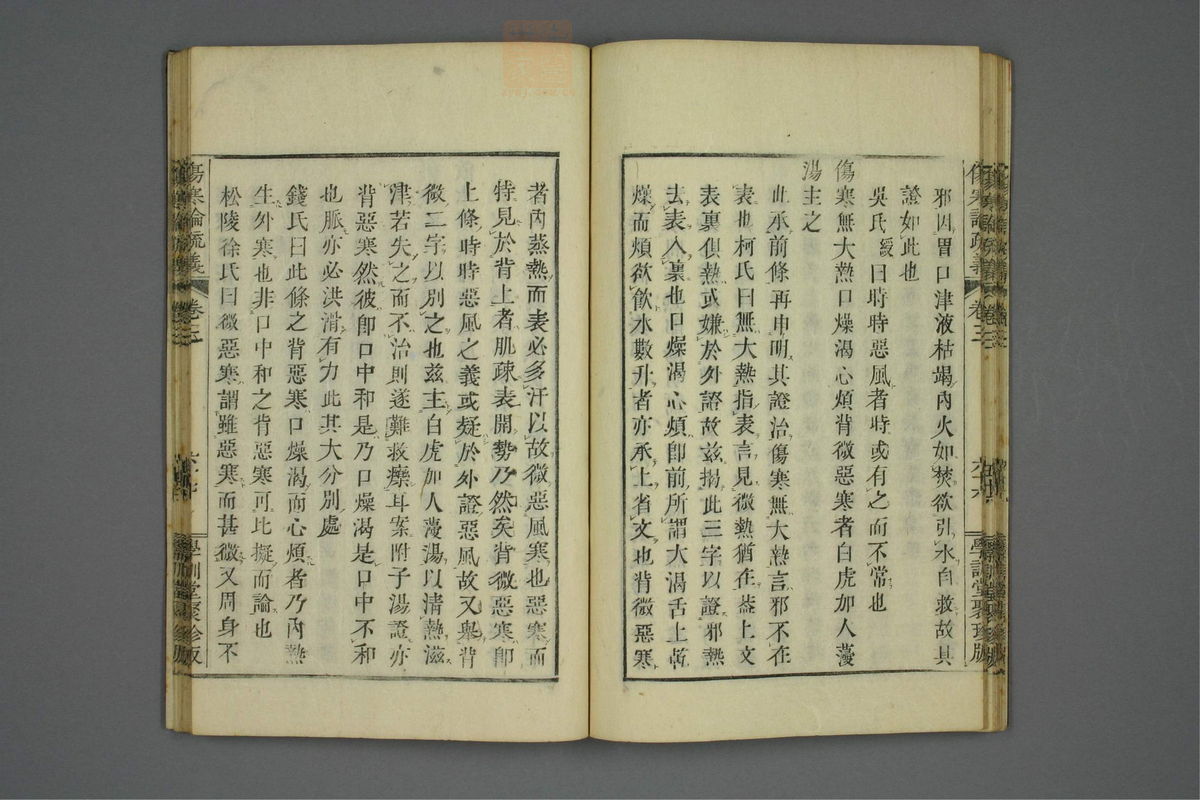 邪因胃口津液枯竭內火如焚欲引水自救故其
證如此也
吳氏緩曰時時惡風者時或有之而不常也
傷寒無大熱口燥渴心煩背微惡寒者白虎加人蔓
湯主之
此承前條再申明其證治傷寒無大熱言邪不在
表也柯氏曰無大熱指表言見微熱猶在葢上文
表裏俱熱或嫌於外證故茲揭此三字以證邪熱
去表入裏也口燥渴心煩卽前所謂大渴舌上乾
燥而煩欲飲水數升者亦承上省文也背微惡寒
者內蒸熱而表必多汗以故微惡風寒也惡寒而
特見於背上者肌疎表開勢乃然矣背微惡寒卽
上條時時惡風之義或疑於外證惡風故又舉背
微二字以別之也茲主白虎加人蔓湯以清熱滋
津若失之而不治則遂難救療耳案附子湯證亦
背惡寒然彼卽口中和是乃口燥渴是口中不和
也脈亦必洪滑有力此其大分別處
錢氏曰此條之背惡寒口燥渴而心煩者乃內熱
生外寒也非口中和之背惡寒可比擬而論也
松陵徐氏曰微惡寒謂雖惡寒而甚微又周身不
傷寒論疏義
卷三
學訓堂聚珍版
傷寒論疏義
卷三
學訓堂聚珍版